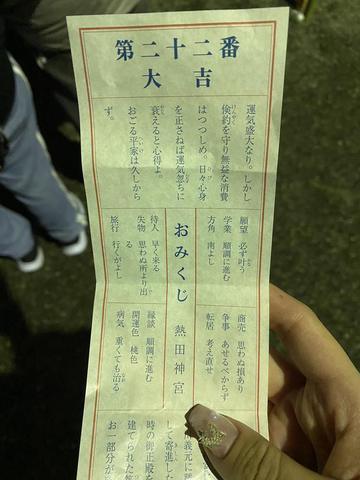 第二十二番
大吉
運気盛大なり。しかし
倹約を守り無益な消費
はつつしめ。日々心身
を正さねば運気忽ちに
衰えると心得よ。
おごる平家は久しから
ず。
願望 必ず叶う
学業 順調に進む
方角 南よし
商売 思わぬ損あり
争事 あせるべからず
転居 考え直せ
おみくじ 熱田神宮
待人 早く来る
失物 思わぬ所より出
る
旅行 行くがよし
縁談 順調に進む
開運色 桃色
病気 重くても治る
して寄進した
時の御正殿を
建てられた
お一部分が